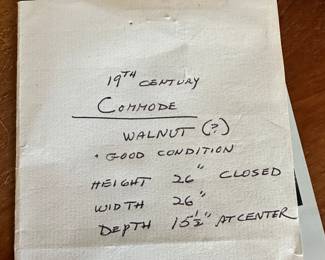 19TH CENTURY
COMMODE
WALNUT (?)
• GOOD CONDITION
HEIGHT 26" CLOSED
WIDTH 26"
DEPTH 15½" AT CENTER